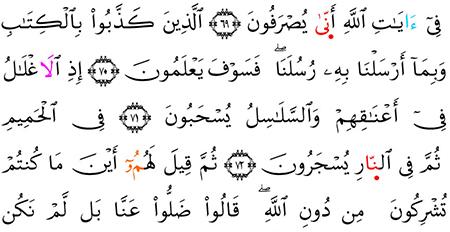 فِىٓ ءَايَـٰتِ ٱللَّهِ أَنَّىٰ يُصْرَفُونَ ٦٩ ٱلَّذِينَ كَذَّبُوا۟ بِٱلْكِتَـٰبِ
وَبِمَآ أَرْسَلْنَا بِهِۦ رُسُلَنَا ۖ فَسَوْفَ يَعْلَمُونَ ٧٠ إِذِ ٱلَاغْلَـٰلُ
فِىٓ أَعْنَـٰقِهِمْ وَٱلسَّلَـٰسِلُ يُسْحَبُونَ ٧١ فِى ٱلْحَمِيمِ
ثُمَّ فِى ٱلنَّارِ يُسْجَرُونَ ٧٢ ثُمَّ قِيلَ لَهُمُۥٓ أَيْنَ مَا كُنتُمْ
تُشْرِكُونَ مِن دُونِ ٱللَّهِ ۖ قَالُوا۟ ضَلُّوا۟ عَنَّا بَل لَّمْ نَكُن